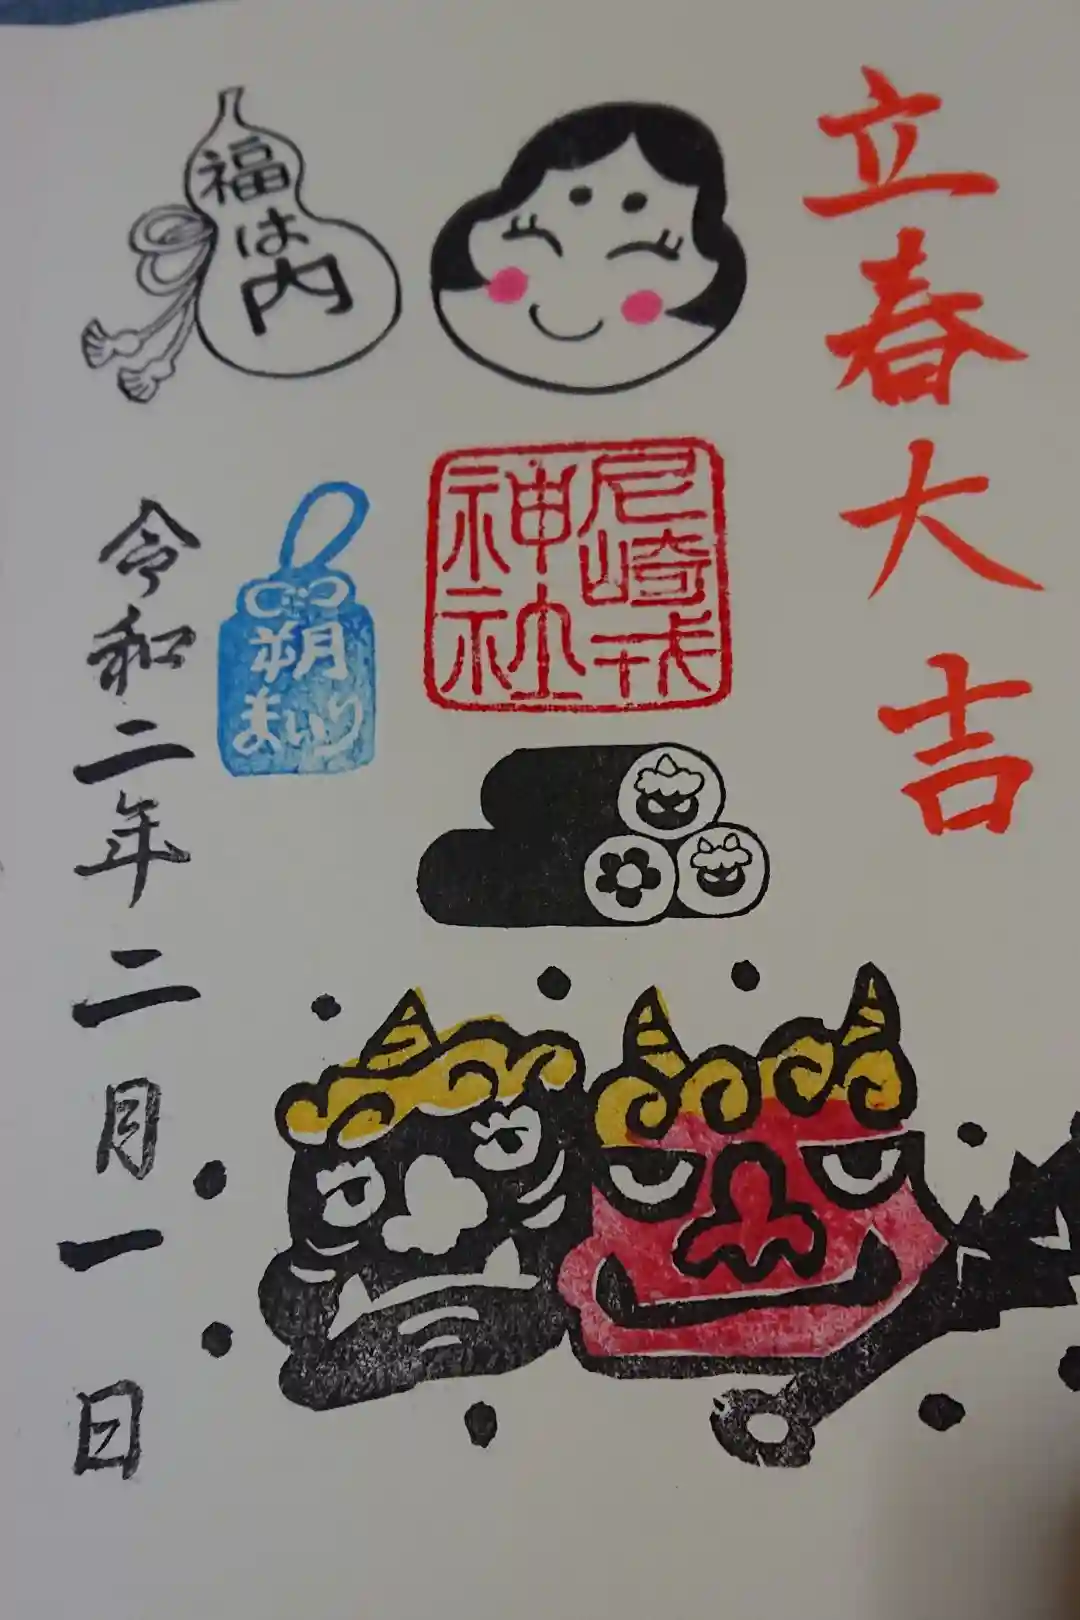 立春大吉
福は内
尼崎戎
神社
朔
まいり
令和二年二月一日